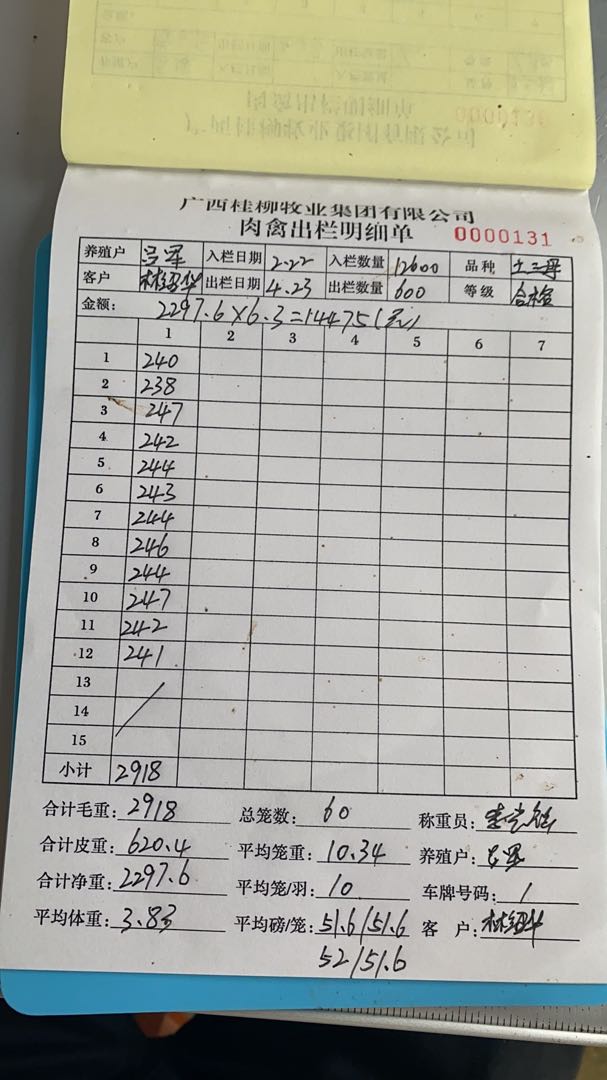 广西桂柳牧业集团有限公司
肉禽出栏明细单 0000131
养殖户 吕军 入栏日期 2.22 入栏数量 12600 品种 土三丹
客户 林绍华 出栏日期 4.23 出栏数量 600 等级 合格
金额: 2297.6×6.3=14475(元)
1 2 3 4 5 6 7
1 240
2 238
3 247
4 242
5 244
6 243
7 244
8 246
9 244
10 247
11 242
12 241
13
14
15
小计 2918
合计毛重: 2918 总笼数: 60 称重员:
合计皮重: 620.4 平均笼重: 10.34 养殖户: 吕军
合计净重: 2297.6 平均笼/羽: 10 车牌号码: 1
平均体重: 3.83 平均磅/笼: 51.6/51.6 客 户: 林绍华
52/51.6